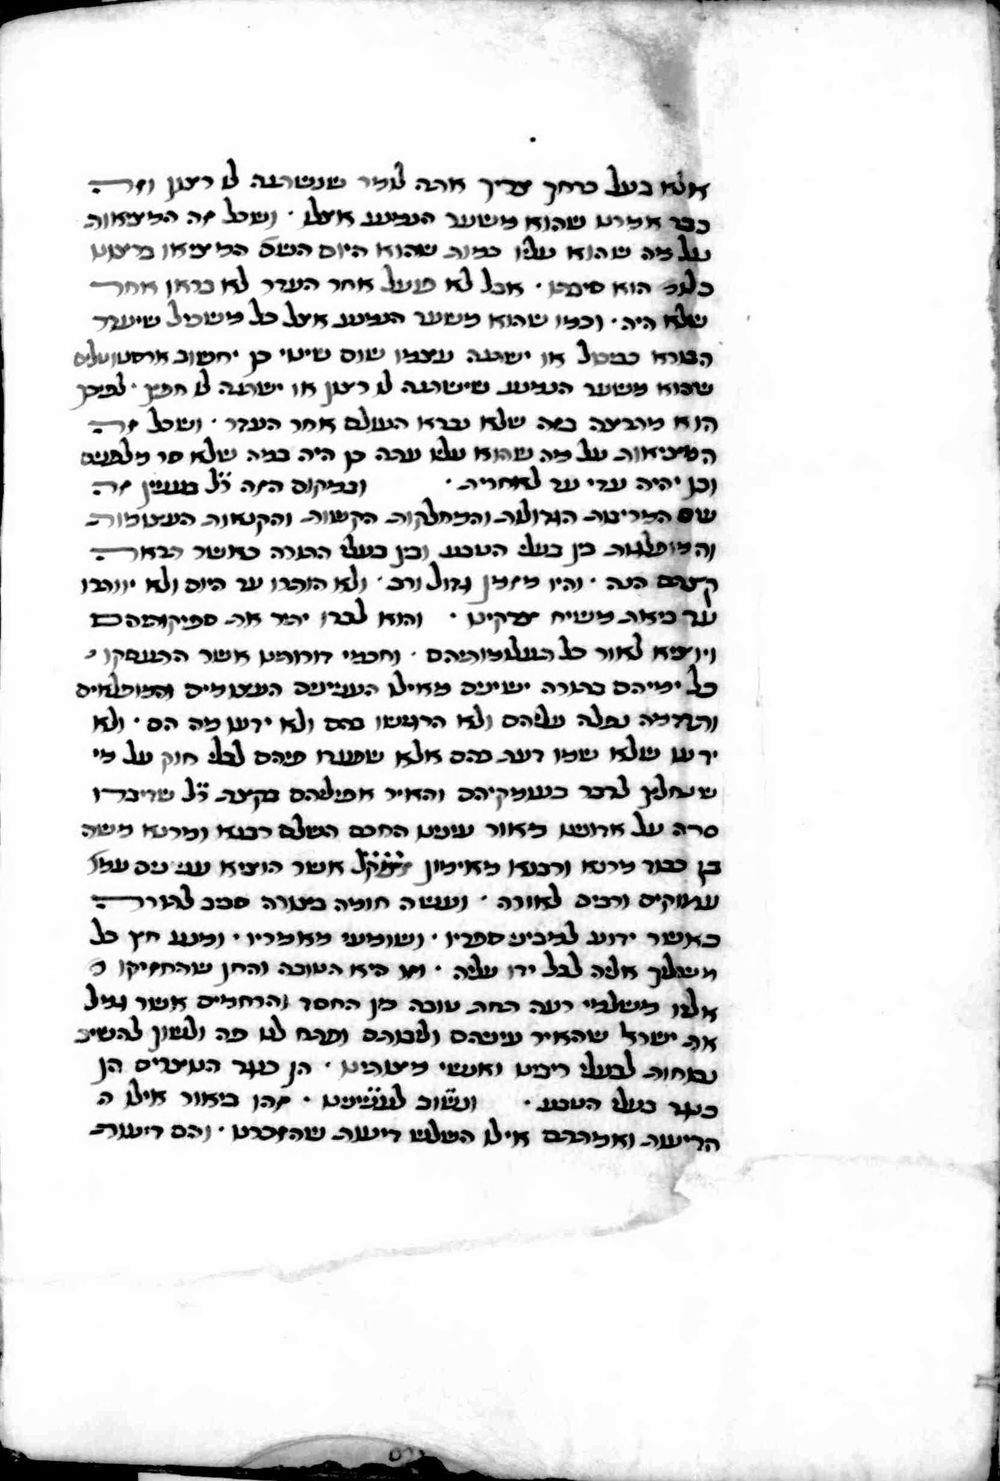 אלא בעל כרחך צריך אתה לומר שנשתנה לו רצון וזה
כבר אמרנו שהוא משער הנמנע אצלו · ושכל זה המציאות
על מה שהוא עליו כמות שהוא היום השם המציאו ברצונו
כלומ הוא סיבתו · אבל לא פועל אחר העדר לא בראו אחר
שלא היה · וכמו שהוא משער הנמנע אצל כל משכיל שיעדר
הבורא כביכול או ישתנה עצמו שום שינוי כן יחשוב ארסטוטליס
שהוא משער הנמנע שישתנה לו רצון או ישתנה לו חפץ · לפיכך
הוא מתרצה בזה שלא נברא העולם אחר העדר · ושכל זה
המציאות על מה שהוא עליו עתה כן היה במה שלא סר מלפנים
וכן יהיה עדי עד לאחרית · ובמקום הזה ר̈ל̈ בעניין זה
שם המריבות הגדולות והמחלקות הקשות והקנאות העצומות
והמופלגות בין בעלי הטבע ובין בעלי התורה כאשר הבאתי
קצתם הנה · והיו מזמן גדול ורב · ולא הותרו עד היום ולא יוותרו
עד ביאת משיח צדקינו · והוא לבדו יתיר את ספיקותיהם
ויוציא לאור כל תעלומותיהם · וחכמי דורותינו אשר התעסקו
כל ימיהם בתורה ישינים מאילו העניינים העצומים והמופלאים
ותרדמה נפלה עליהם ולא הרגישו בהם ולא ידעו מה הם · ולא
ידעו שלא שמו דעת בהם אלא שפערו פיהם לבלי חוק על מי
שנחלץ לדבר בעומקיהם והאיר אפילתם בקצת ר̈ל̈ שדיברו
סרה על אדוננו מאור עינינו החכם השלם רבנא ומרנא משה
בן כבוד מרנא ורבנא מאימון אשר הוציא עניינים עמו
עמוקים ורבים לאורה · ועשה חומה בצורה סביב לתורה
כאשר ידוע למביני ספריו · ושומעי מאמריו · ומנע חץ כל
משליך אליה לבל ידו עליה · וזו היא הטובה והחן שהחזיקו
אליו משלמי רעה תחת טובה מן החסד והרחמים אשר גמל
את ישראל שהאיר עיניהם ולבותם ופתח לנו פה ולשון להשיב
נכוחות לבעלי ריבינו ואנשי מצותינו · הן כנגד הנוצרים הן
כנגד בעלי הטבע · ונשוב לעניינינו · זהו ביאור אילו ה
הדיעות ואמתתם אילו השלש דיעות שהזכרנו · והם דיעות